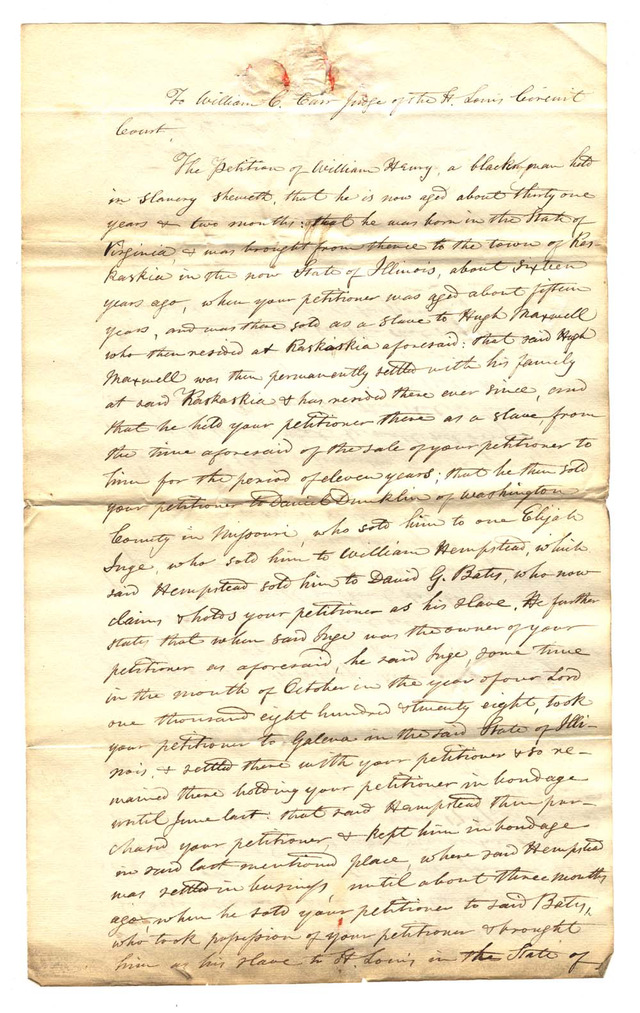 To William C. Carr Judge of the St. Louis Circuit
Court,
The Petition of William Henry, a black man held
in slavery sheweth, that he is now aged about thirty one
years & two months: that he was born in the State of
Virginia, & was brought from thence to the town of Kas-
kaskia in the now State of Illinois, about sixteen
years ago, when your petitioner was aged about fifteen
years, and was there sold as a slave to Hugh Maxwell
who then resided at Kaskaskia aforesaid: that said Hugh
Maxwell was then permanently settled with his family
at said Kaskaskia & has resided there ever since, and
that he held your petitioner there as a slave, from
the time aforesaid of the sale of your petitioner to
him for the period of eleven years; that he then sold
your petitioner to Daniel Dunklin of Washington
County in Missouri, who sold him to one Elijah
Inge, who sold him to William Hempstead, which
said Hempstead sold him to David G. Bates, who now
claims & holds your petitioner as his slave. He further
states that when said Inge was the owner of your
petitioner as aforesaid, he said Inge, some time
in the month of October in the year of our Lord
one thousand eight hundred & twenty eight, took
your petitioner to Galena in the said State of Illi-
nois, & settled there with your petitioner & so re-
mained there holding your petitioner in bondage
until June last: that said Hempstead then pur-
chased your petitioner, & kept him in bondage
in said last mentioned place, where said Hempstead
was settled in business, until about three months
ago, when he sold your petitioner to said Bates,
who took possession of your petitioner & brought
him as his slave to St. Louis in the State of